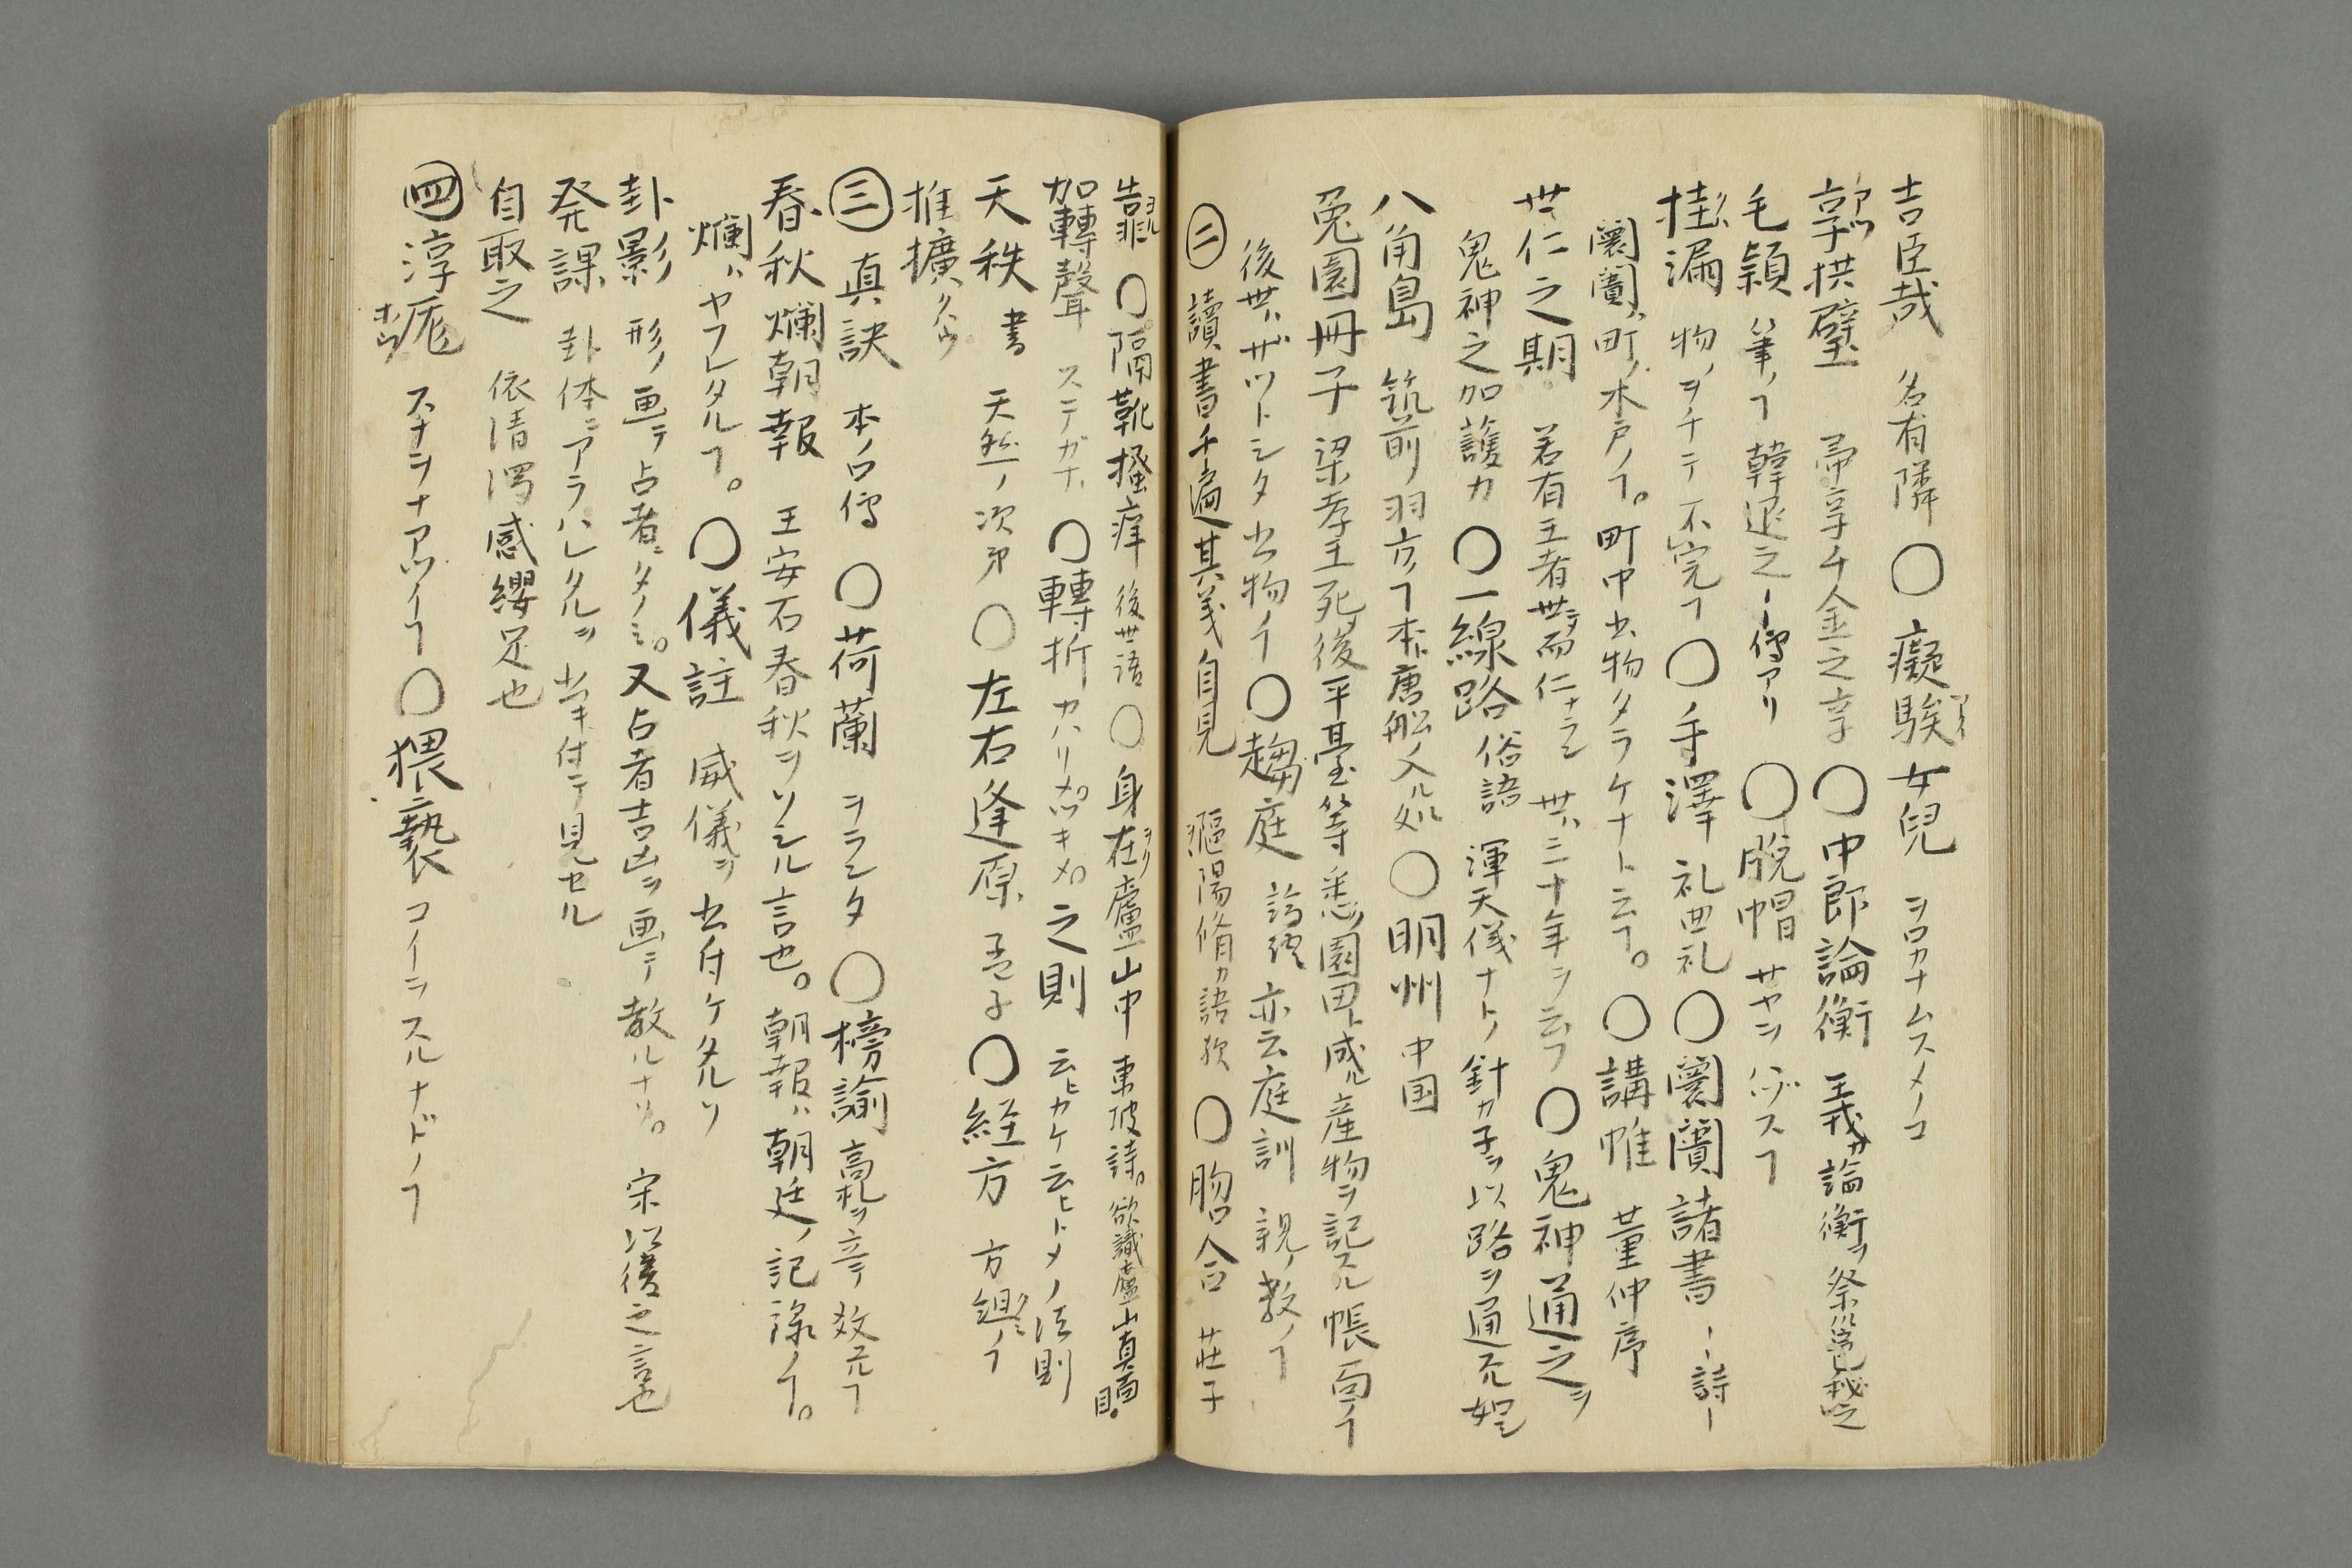 吉臣哉　名有隣　〇癡騃女兒　ヲロカナムスメノコ
享拱璧　帚享千金之享　〇中郎論衡　王義カ論衡ヲ祭邕秘之
毛穎　筆ノヿ　韓退之ー傳アリ　〇脱帽　サヤヲハヅスヿ
挂漏　物ノヲチテ不完ヿ　〇手澤　礼曲礼　〇闤闠諸書　ー詩ー
闤闠ハ町ノ木戸ノヿ。町中ノ書物タラケナトニヿ。　〇講帷　董仲序
世仁之期　若有王者世而仁ナラン　世ハ三十年ヲ云フ　〇鬼神通之ヲ
鬼神之加護カ　〇一線路　俗語　渾天儀ナトノ針カ子ヲ以路ヲ通
八角島　筑前ノ羽方ノヿ本ト唐船ノ入ル処　〇明州　中国
兔園冊子　梁孝王死後平臺等悉ク園田ト成ル産物ヲ記スル帳面ノヿ
後世ハザツトシタ書物ノヿ　〇趨庭　論語　亦云庭訓　親ノ教ノヿ
㊁讀書千遍其義自見　歐陽脩カ語歟　〇脗合　莊子
告靠　〇隔靴搔痒　後世語　〇身在廬山中　東坡詩。欲識廬山真面目。
加轉聲　ステガナ　〇轉折　カハリメハツキメ　之則　云ヒカケ云ヒトメノ法則
天秩　書　天然ノ次第　〇左右逢原　孟子　〇経方　方組ノヿ
推擴
㊂真訣　本ノ口傳　〇荷蘭　ヲランタ　〇榜諭　高札ヲ立テ
春秋爛朝報　王安石春秋ヲソシル言也。朝報ハ朝廷ノ記録ノヿ。
爛ハヤフレタルヿ。　〇儀註　威儀ヲ書付ケタルソ
卦影　形ノ画テ占者ニタノミ。又占者吉凶ヲ画テ教ルナリ。　宋以後之言也
発課　卦体ニアラハレタルヲ書キ付テ見セル
自取之　依清濁感纓足也
㊃淳厖　スナヲナアツイヿ　〇猥褻　コイラスルナドノヿ